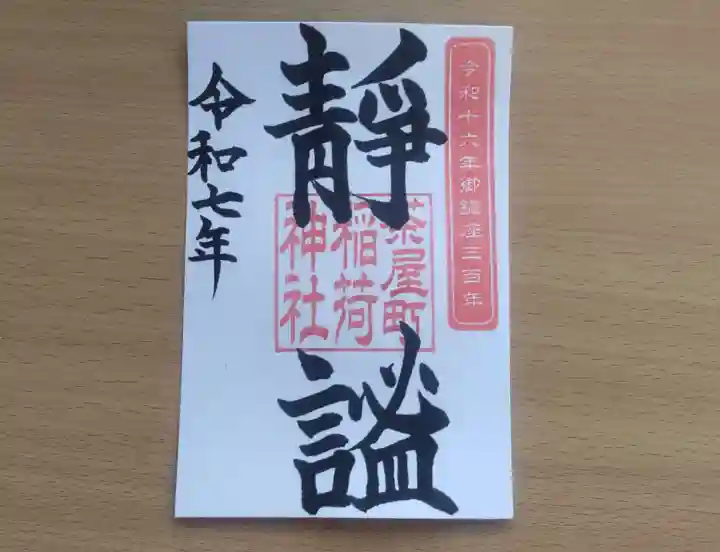 令和十六年御鎮座三百年
靜謐
茶屋町
稲荷
神社
令和七年